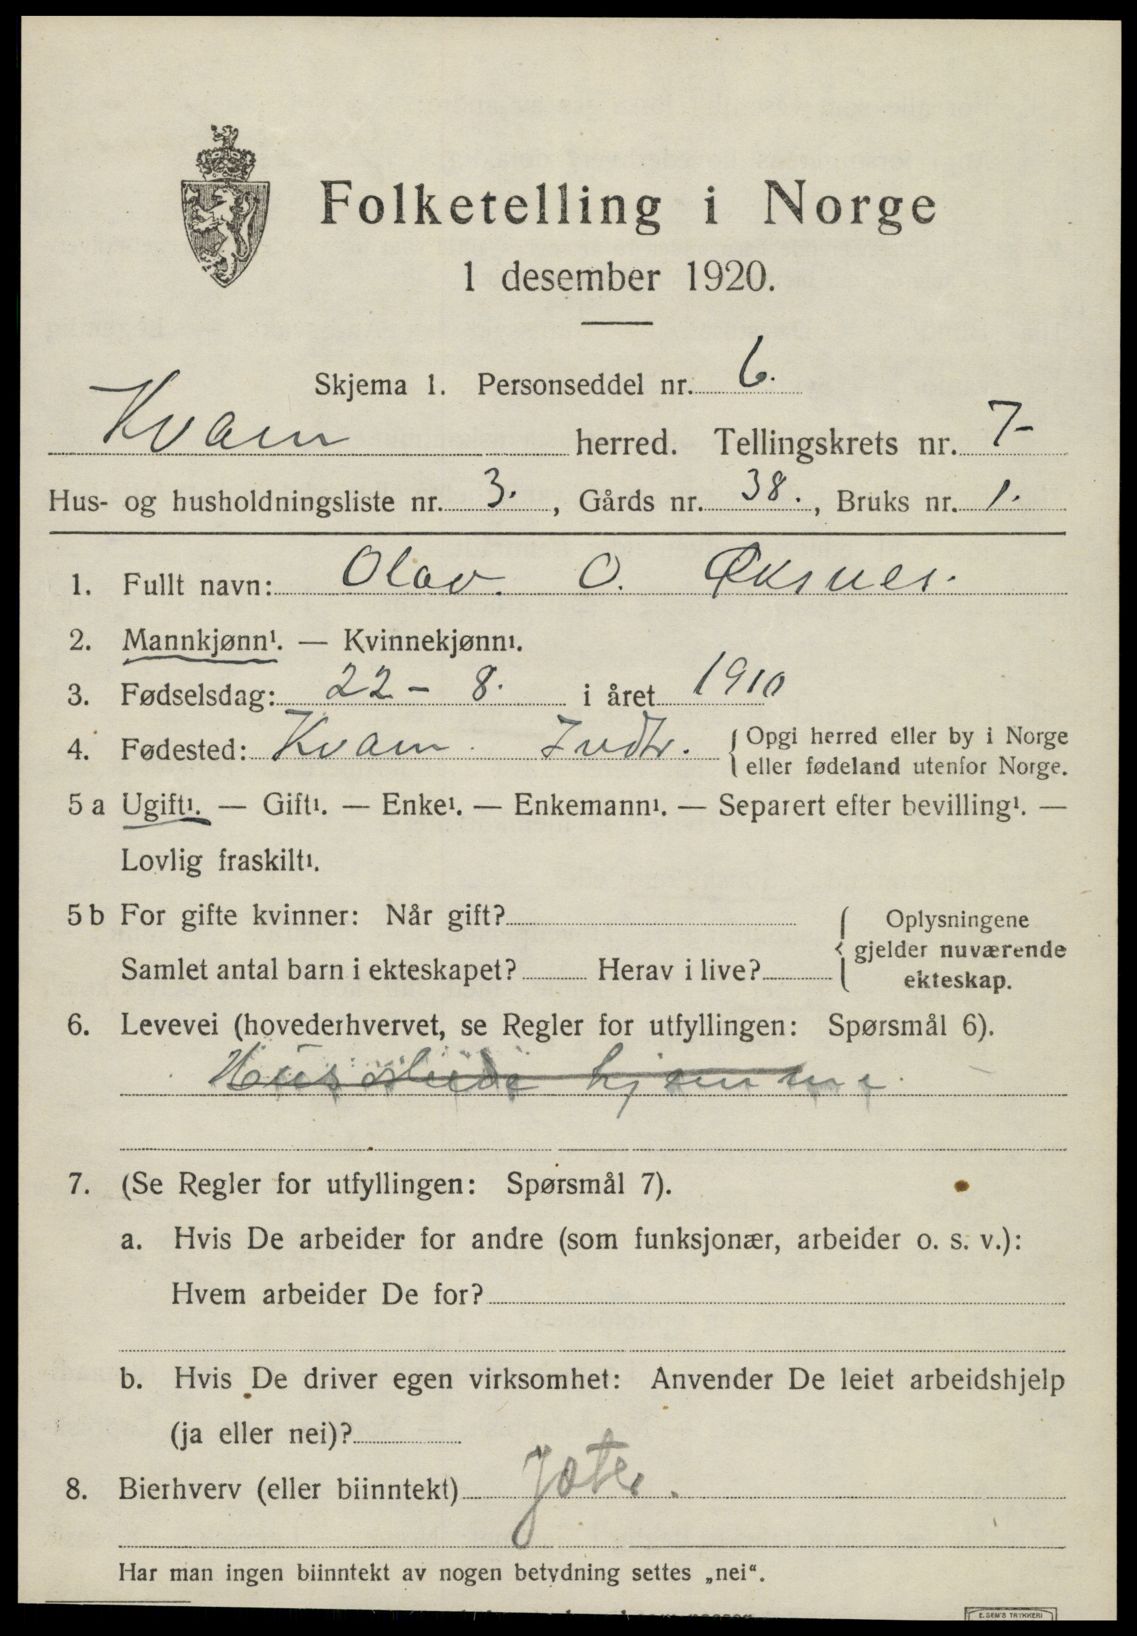 Folketelling i Norge
1 desember 1920.
Skjema 1. Personseddel nr. 6.
Kvam herred. Tellingskrets nr. 7-
Hus- og husholdningsliste nr. 3. , Gårds nr. 38. , Bruks nr. 1.
1. Fullt navn: Olav. O. Øksnes.
2. Mannkjønn¹. — Kvinnekjønn¹.
3. Fødselsdag: 22 - 8. i året 1910
4. Fødested: Kvam. Indtr. { Opgi herred eller by i Norge
eller fødeland utenfor Norge.
5 a Ugift¹. — Gift¹. — Enke¹. — Enkemann¹. — Separert efter bevilling¹. —
Lovlig fraskilt¹.
5 b For gifte kvinner: Når gift? { Oplysningene
gjelder nuværende
ekteskap.
Samlet antal barn i ekteskapet? Herav i live?
6. Levevei (hovederhvervet, se Regler for utfyllingen: Spørsmål 6).
hjemme
7. (Se Regler for utfyllingen: Spørsmål 7).
a. Hvis De arbeider for andre (som funksjonær, arbeider o. s. v.):
Hvem arbeider De for?
b. Hvis De driver egen virksomhet: Anvender De leiet arbeidshjelp
(ja eller nei)?
8. Bierhverv (eller biinntekt) Jæter.
Har man ingen biinntekt av nogen betydning settes „nei“.
E. SEM'S TRYKKERI